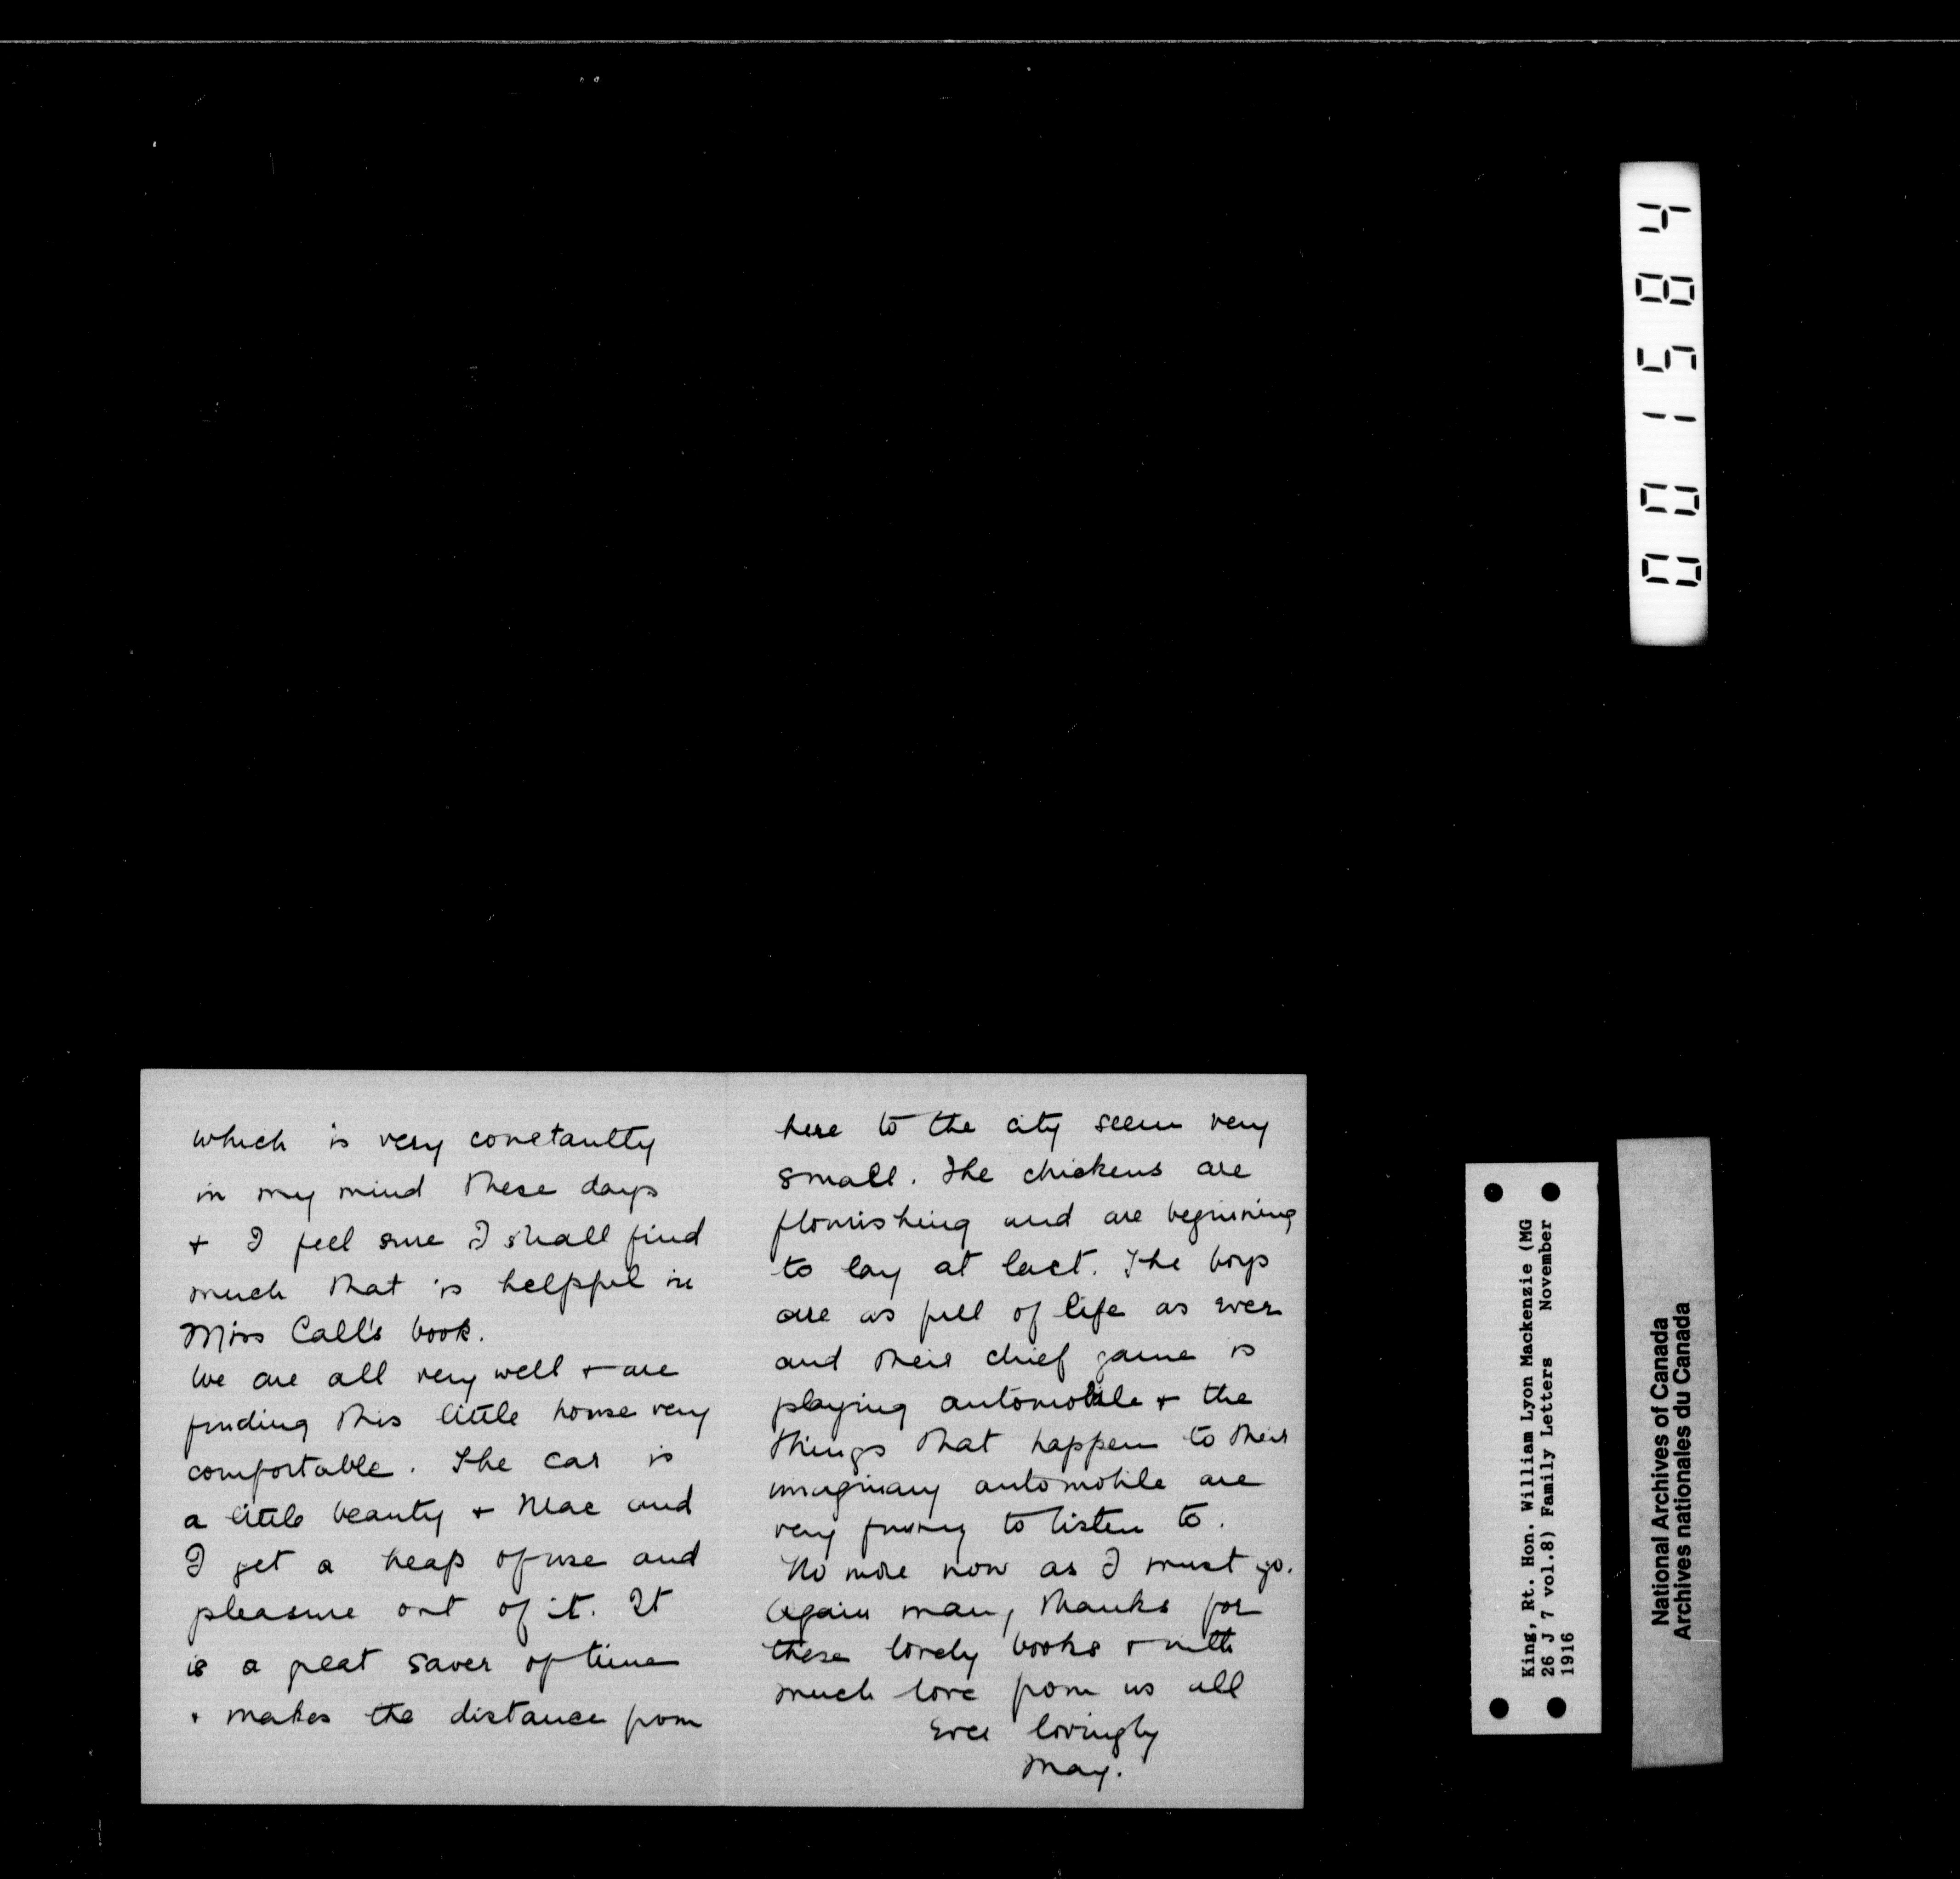 which is very constantly
in my mind these days
+ I feel sure I shall find
much that is helpful in
Miss Call's book.
We are all very well + are
finding this little house very
comfortable. The car is
a little beauty + Mac and
I get a heap of use and
pleasure out of it. It
is a great saver of time
+ makes the distance from
here to the city seem very
small. The chickens are
flourishing and are beginning
to lay at last. The boys
are as full of life as ever
and their chief game is
playing automobile + the
things that happen to their
imaginary automobile are
very funny to listen to.
No more now as I must go.
Again many thanks for
these lovely books + with
much love from us all
Ever lovingly
May.
King, Rt. Hon. William Lyon Mackenzie (MG
26 J 7 vol.8) Family Letters November
1916
National Archives of Canada
Archives nationales du Canada
001584